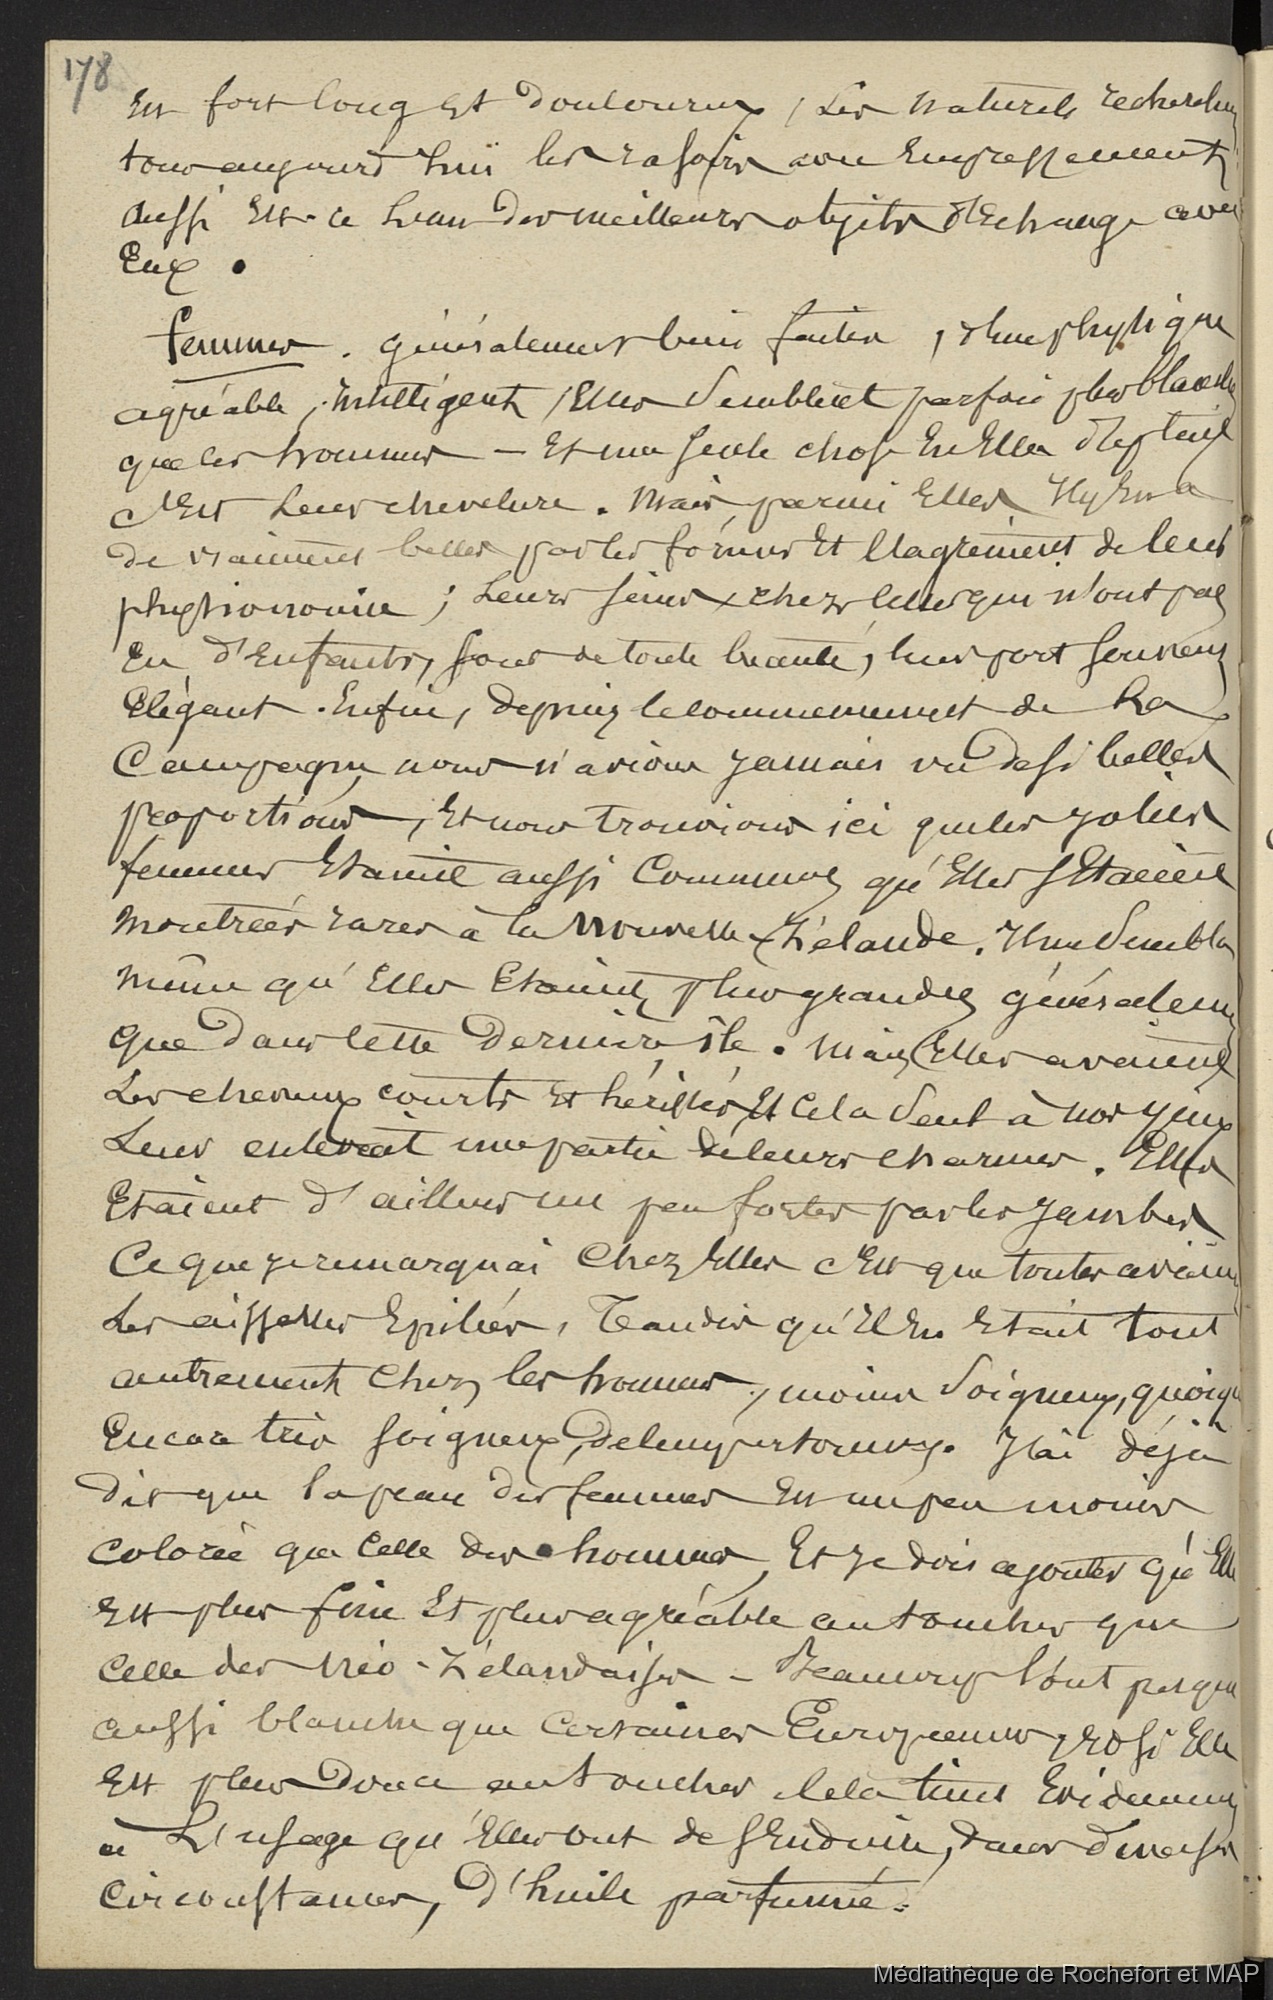 178
Est fort long Et Douloureux, Les naturels recherchen
tous aujourd'hui les rasoirs avec Empressement,
aussi Est-ce l'un des meilleurs objets d'Echange avec
Eux.
femmes. généralement bien faites, d'une physique
agréable, intelligent, Elles semblent parfois plus blanches
que les hommes — Et une seule chose En Elles déplaît
c'Est leur chevelure. Mais, parmi Elles, Il y En a
de vraiment belles par les formes Et l'agrément de leur
physionomie; Leurs seins, chez celles qui n'ont pas
Eu d'Enfants, sont de toute beauté, leur port souvent
Elégant. Enfin, depuis le commencement de la
Campagne, nous n'avions jamais vu de si belles
proportions, Et nous trouvions ici que les jolies
femmes Etaient aussi Communes qu'Elles s'Etaient
montrées rares à la Nouvelle-Zélande. Il me sembla
même qu'Elles Etaient plus grandes généralement
que dans cette Dernière île. Mais Elles avaient
Les cheveux courts Et hérissés, Et cela seul à nos yeux
Leur enlevait une partie de leurs charmes. Elles
Etaient d'ailleurs un peu fortes par les jambes
Ce que je remarquai Chez Elles c'Est que toutes avaient
Les aisselles Epilées, Tandis qu'Il En Etait tout
autrement Chez les hommes, moins soigneux, quoique
Encore très soigneux, de leurs personnes. J'ai déjà
dit que la peau des femmes Est un peu moins
colorée que Celle des hommes, Et je dois ajouter qu'Elle
Est plus fine Et plus agréable au toucher que
Celle des Néo-Zélandaises — Beaucoup l'ont presque
aussi blanche que Certaines Européennes, Et si Elle
Est plus Douce au toucher cela tient Evidemment
à L'usage qu'Elles ont de s'Enduire, dans diverses
Circonstances, D'huile parfumée.
Médiathèque de Rochefort et MAP